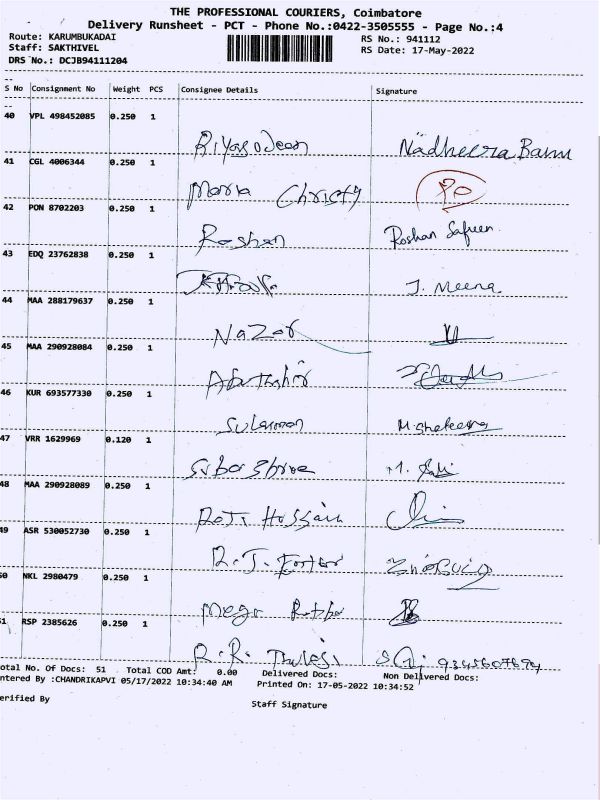 THE PROFESSIONAL COURIERS, Coimbatore
Delivery Runsheet - PCT - Phone No.:0422-3505555 - Page No.:4
Route: KARUMBUKADAI RS No.: 941112
Staff: SAKTHIVEL RS Date: 17-May-2022
DRS No.: DCJB94111204
S No Consignment No Weight PCS Consignee Details Signature
40 VPL 498452085 0.250 1
Riyasodeen Nadheera Banu
41 CGL 4006344 0.250 1
Maria Christy PO
42 PON 8702203 0.250 1
Roshan Roshan Safreen
43 EDQ 23762838 0.250 1
J. Meena
44 MAA 288179637 0.250 1
Nazar
45 MAA 290928084 0.250 1
46 KUR 693577330 0.250 1
Sulaiman M. Shakeena
47 VRR 1629969 0.120 1
M.
48 MAA 290928089 0.250 1
Hossain
49 ASR 530052730 0.250 1
R. J.
50 NKL 2980479 0.250 1
Mega
51 RSP 2385626 0.250 1
R. R. Thulasi 9345607674
otal No. Of Docs: 51 Total COD Amt: 0.00 Delivered Docs: Non Delivered Docs:
ntered By :CHANDRIKAPVI 05/17/2022 10:34:40 AM Printed On: 17-05-2022 10:34:52
erified By
Staff Signature